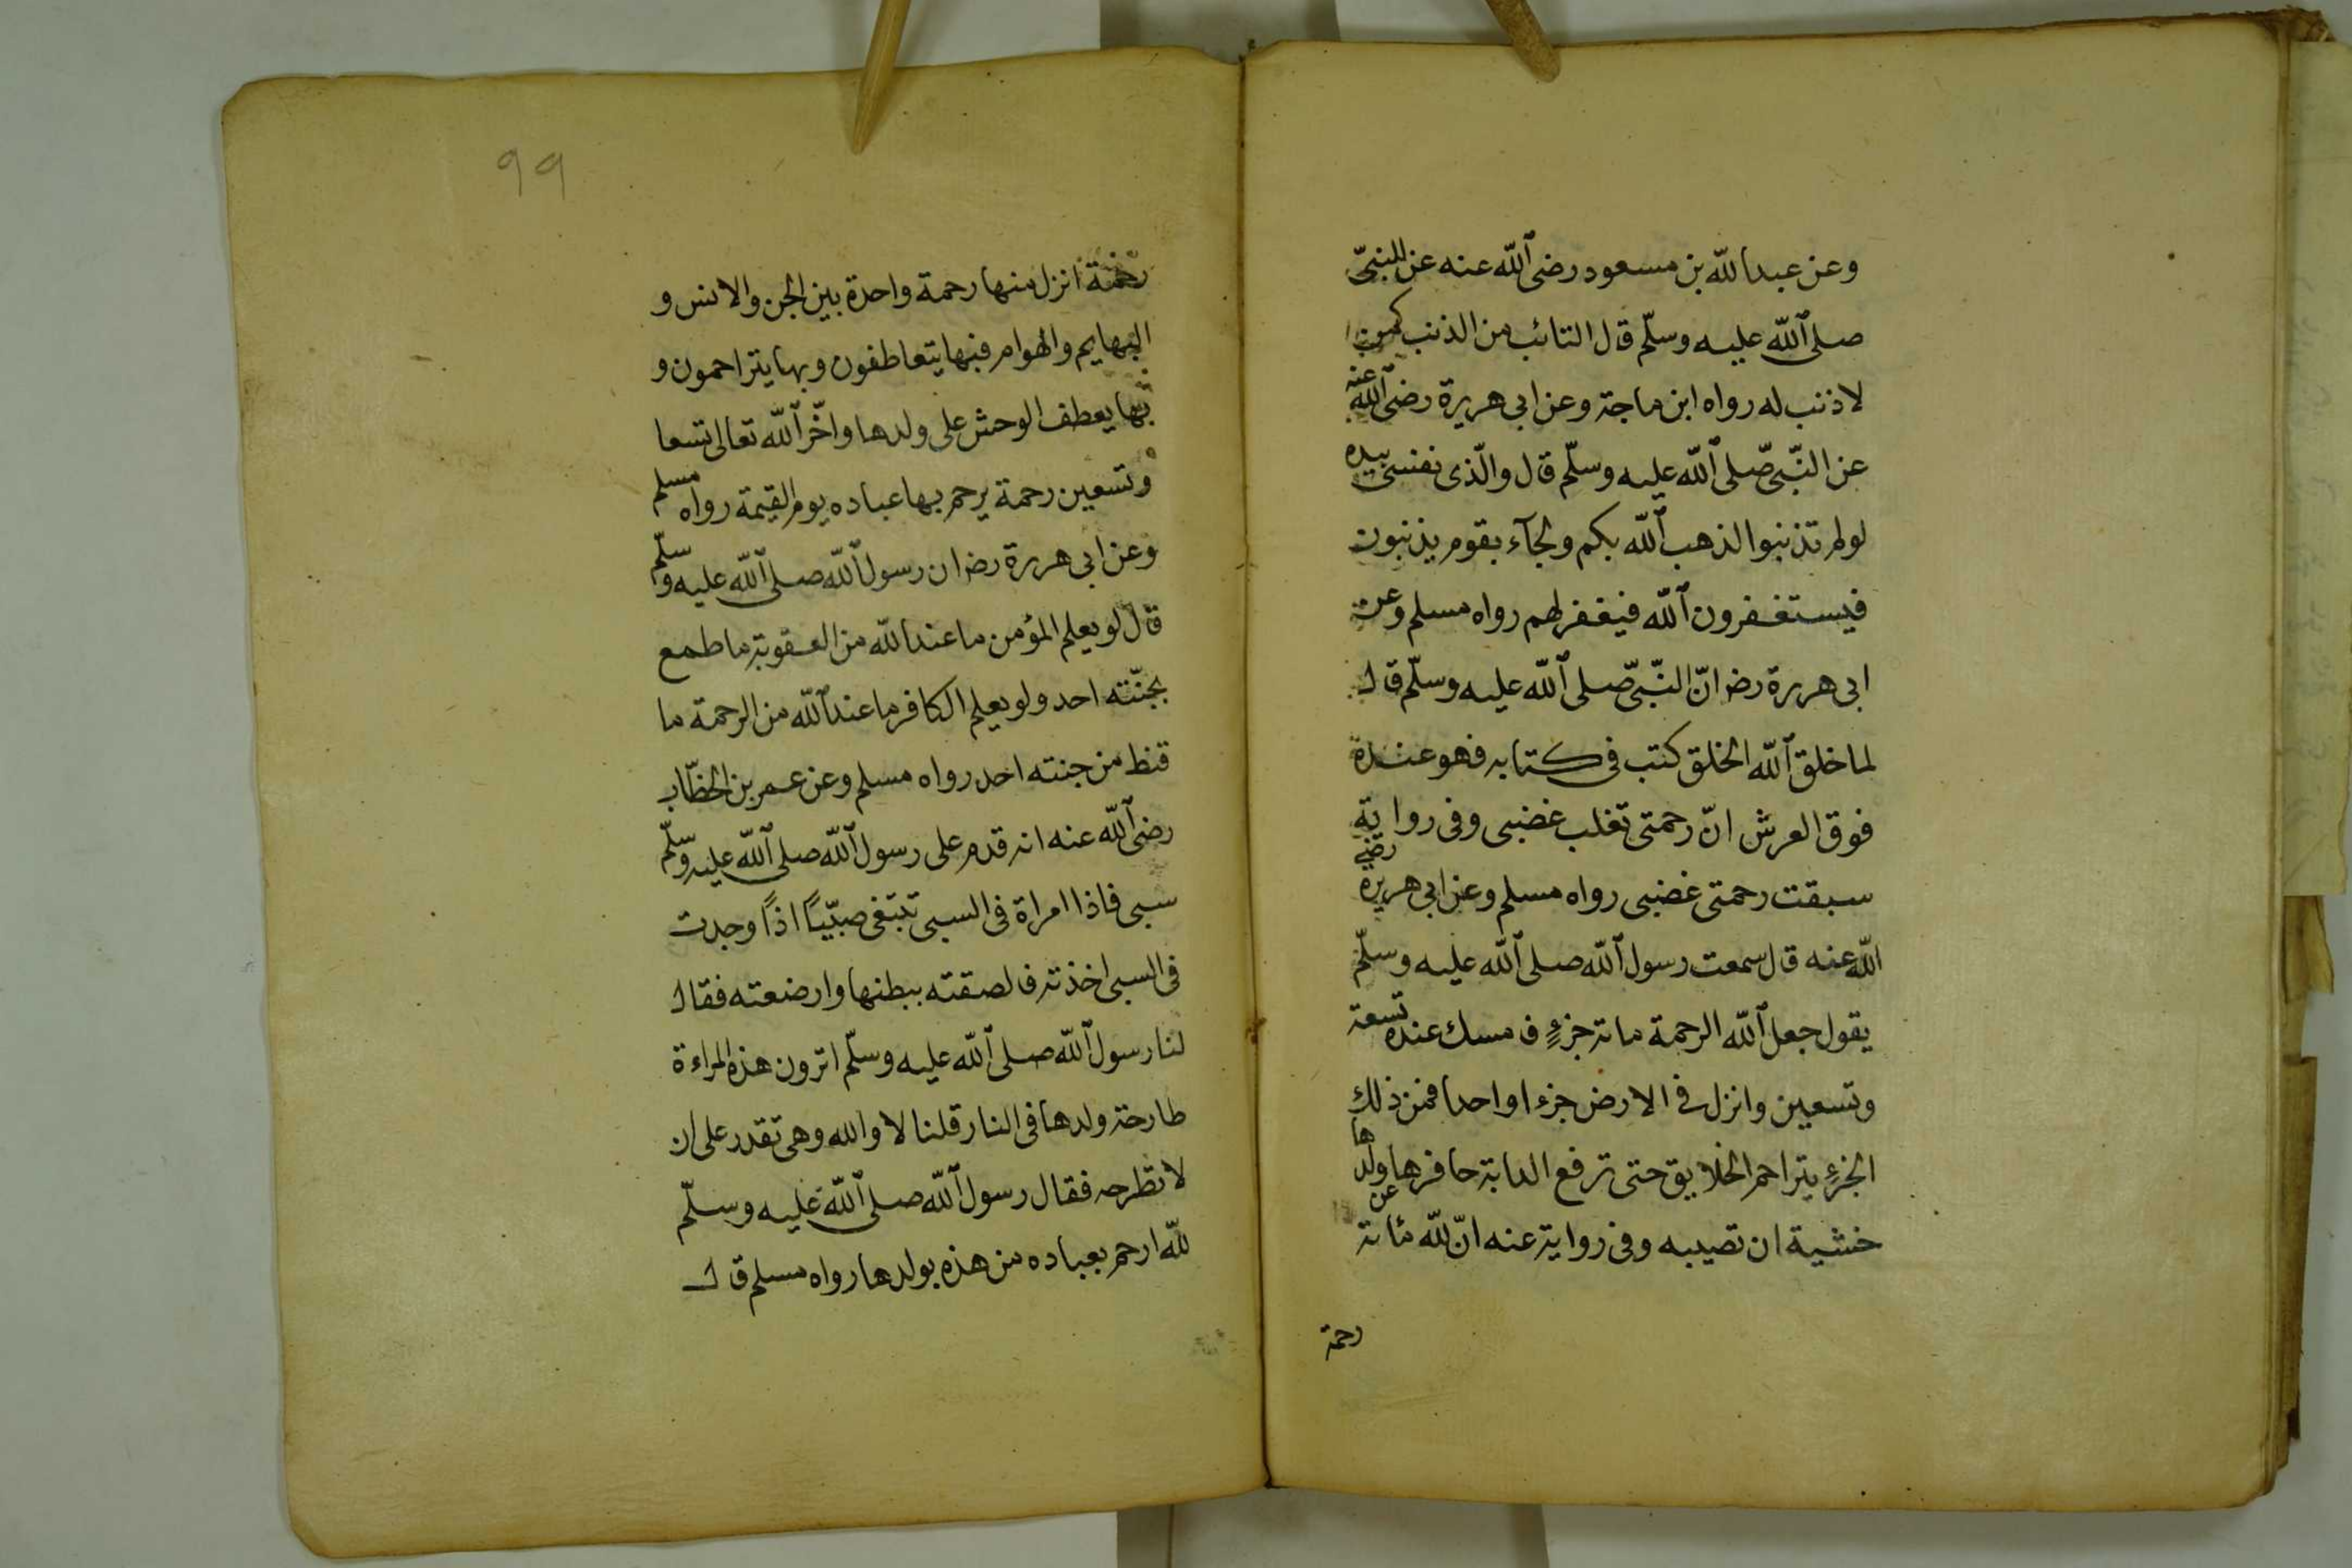 وعن عبد الله بن مسعود رضى الله عنه عن النبىّ
صلى الله عليه وسلّم قال التائب من الذنب كمن
لاذنب له رواه ابن ماجة وعن ابى هريرة رضى الله عنه
عن النّبىّ صّلى الله عليه وسلّم قال والّذى نفسى بيده
لولم تذنبوا لذهب الله بكم ولجآء بقوم يذنبون
فيستغفرون الله فيغفر لهم رواه مسلم وعن
ابى هريرة رضر انّ النّبىّ صلى الله عليه وسلّم قال
لما خلق الله الخلق كتب فى كتابه فهو عنده
فوق العرش انّ رحمتى تغلب غضبى وفى رواية
سبقت رحمتى غضبى رواه مسلم وعن ابى هريرة رضى
الله عنه قال سمعت رسول الله صلى الله عليه وسلّم
يقول جعل الله الرحمة ماتة جزءٍ فامسك عنده تسعة
وتسعين وانزل فى الارض جزءا واحدا فمن ذلك
الجزءِ يتراحم الخلايق حتى ترفع الدابة حافرها عن ولدها
خشية ان تصيبه وفى رواية عنه انّ لله مائة
رحمة
99
رحمة انزل منها رحمة واحدة بين الجن والانس و
البهايم والهوام فبها يتعاطفون وبها يتراحمون و
بها يعطف الوحش على ولدها واخّر الله تعالى تسعا
وتسعين رحمة يرحم بها عباده يوم القيمة رواه مسلم
وعن ابى هريرة رضر ان رسول الله صلى الله عليه وسلّم
قال لو يعلم المؤمن ما عند الله من العقوبة ما طمع
بجنّته احد ولو يعلم الكافر ما عند الله من الرحمة ما
قنط من جنته احد رواه مسلم وعن عمر بن الخطّاب
رضى الله عنه انه قدم على رسول الله صلى الله عليه وسلّم
سبى فاذا امراة فى السبى تبتغى صبّيًا اذًا وجدت
فى السبى اخذته فالصقته ببطنها وارضعته فقال
لنا رسول الله صلى الله عليه وسلّم اترون هذه المراءة
طارحة ولدها فى النار قلنا لا والله وهى تقدر على ان
لا تطرحه فقال رسول الله صلى الله عليه وسلّم
لله ارحم بعباده من هذه بولدها رواه مسلم قال